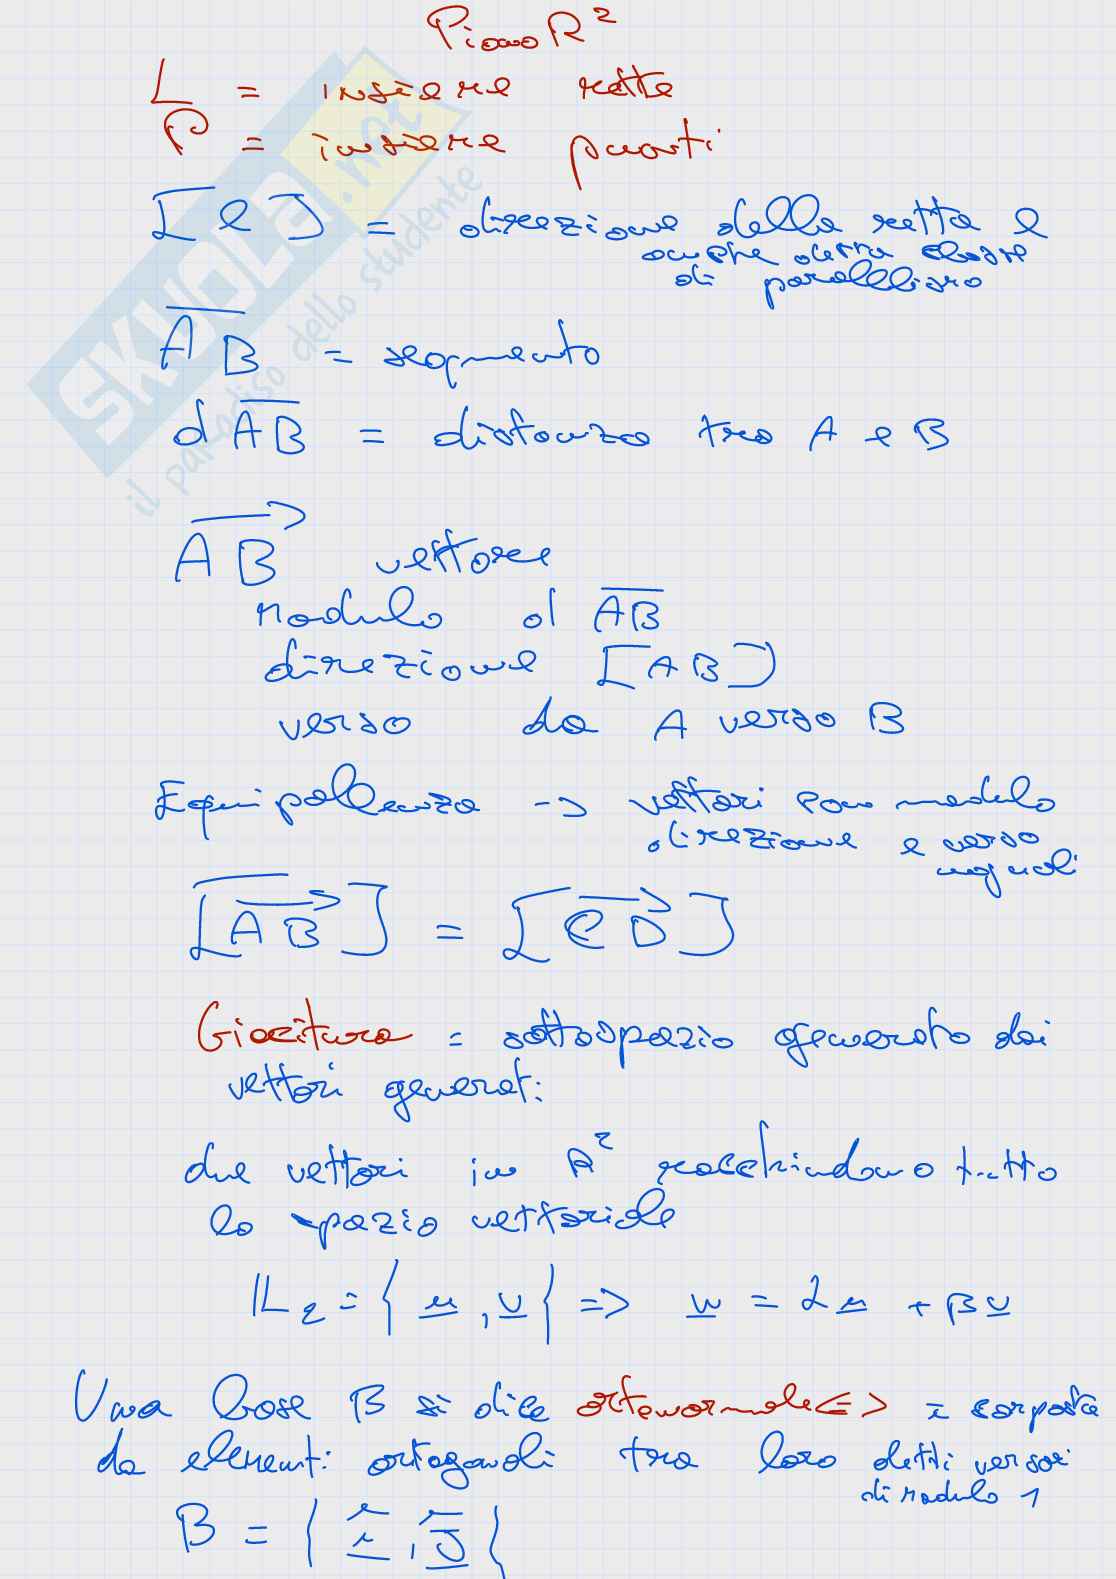 Piano R²
L = insieme rette
P = insieme punti
[l] = direzione della retta l
anche detta classe
di parallelismo
AB = segmento
d AB = distanza tra A e B
AB vettore
modulo d AB
direzione [AB]
verso da A verso B
Equipollenza -> vettori con modulo
direzione e verso
uguali
[AB] = [CD]
Giacitura = sottospazio generato dai
vettori generat:
due vettori in R² racchiudono tutto
lo spazio vettoriale
L₂ = { u , v } => w = αu + βv
Una base B si dice ortonormale <=> è composta
da elementi ortogonali tra loro detti versori
di modulo 1
B = { i , j }
SKUOLA.net
il paradiso dello studente